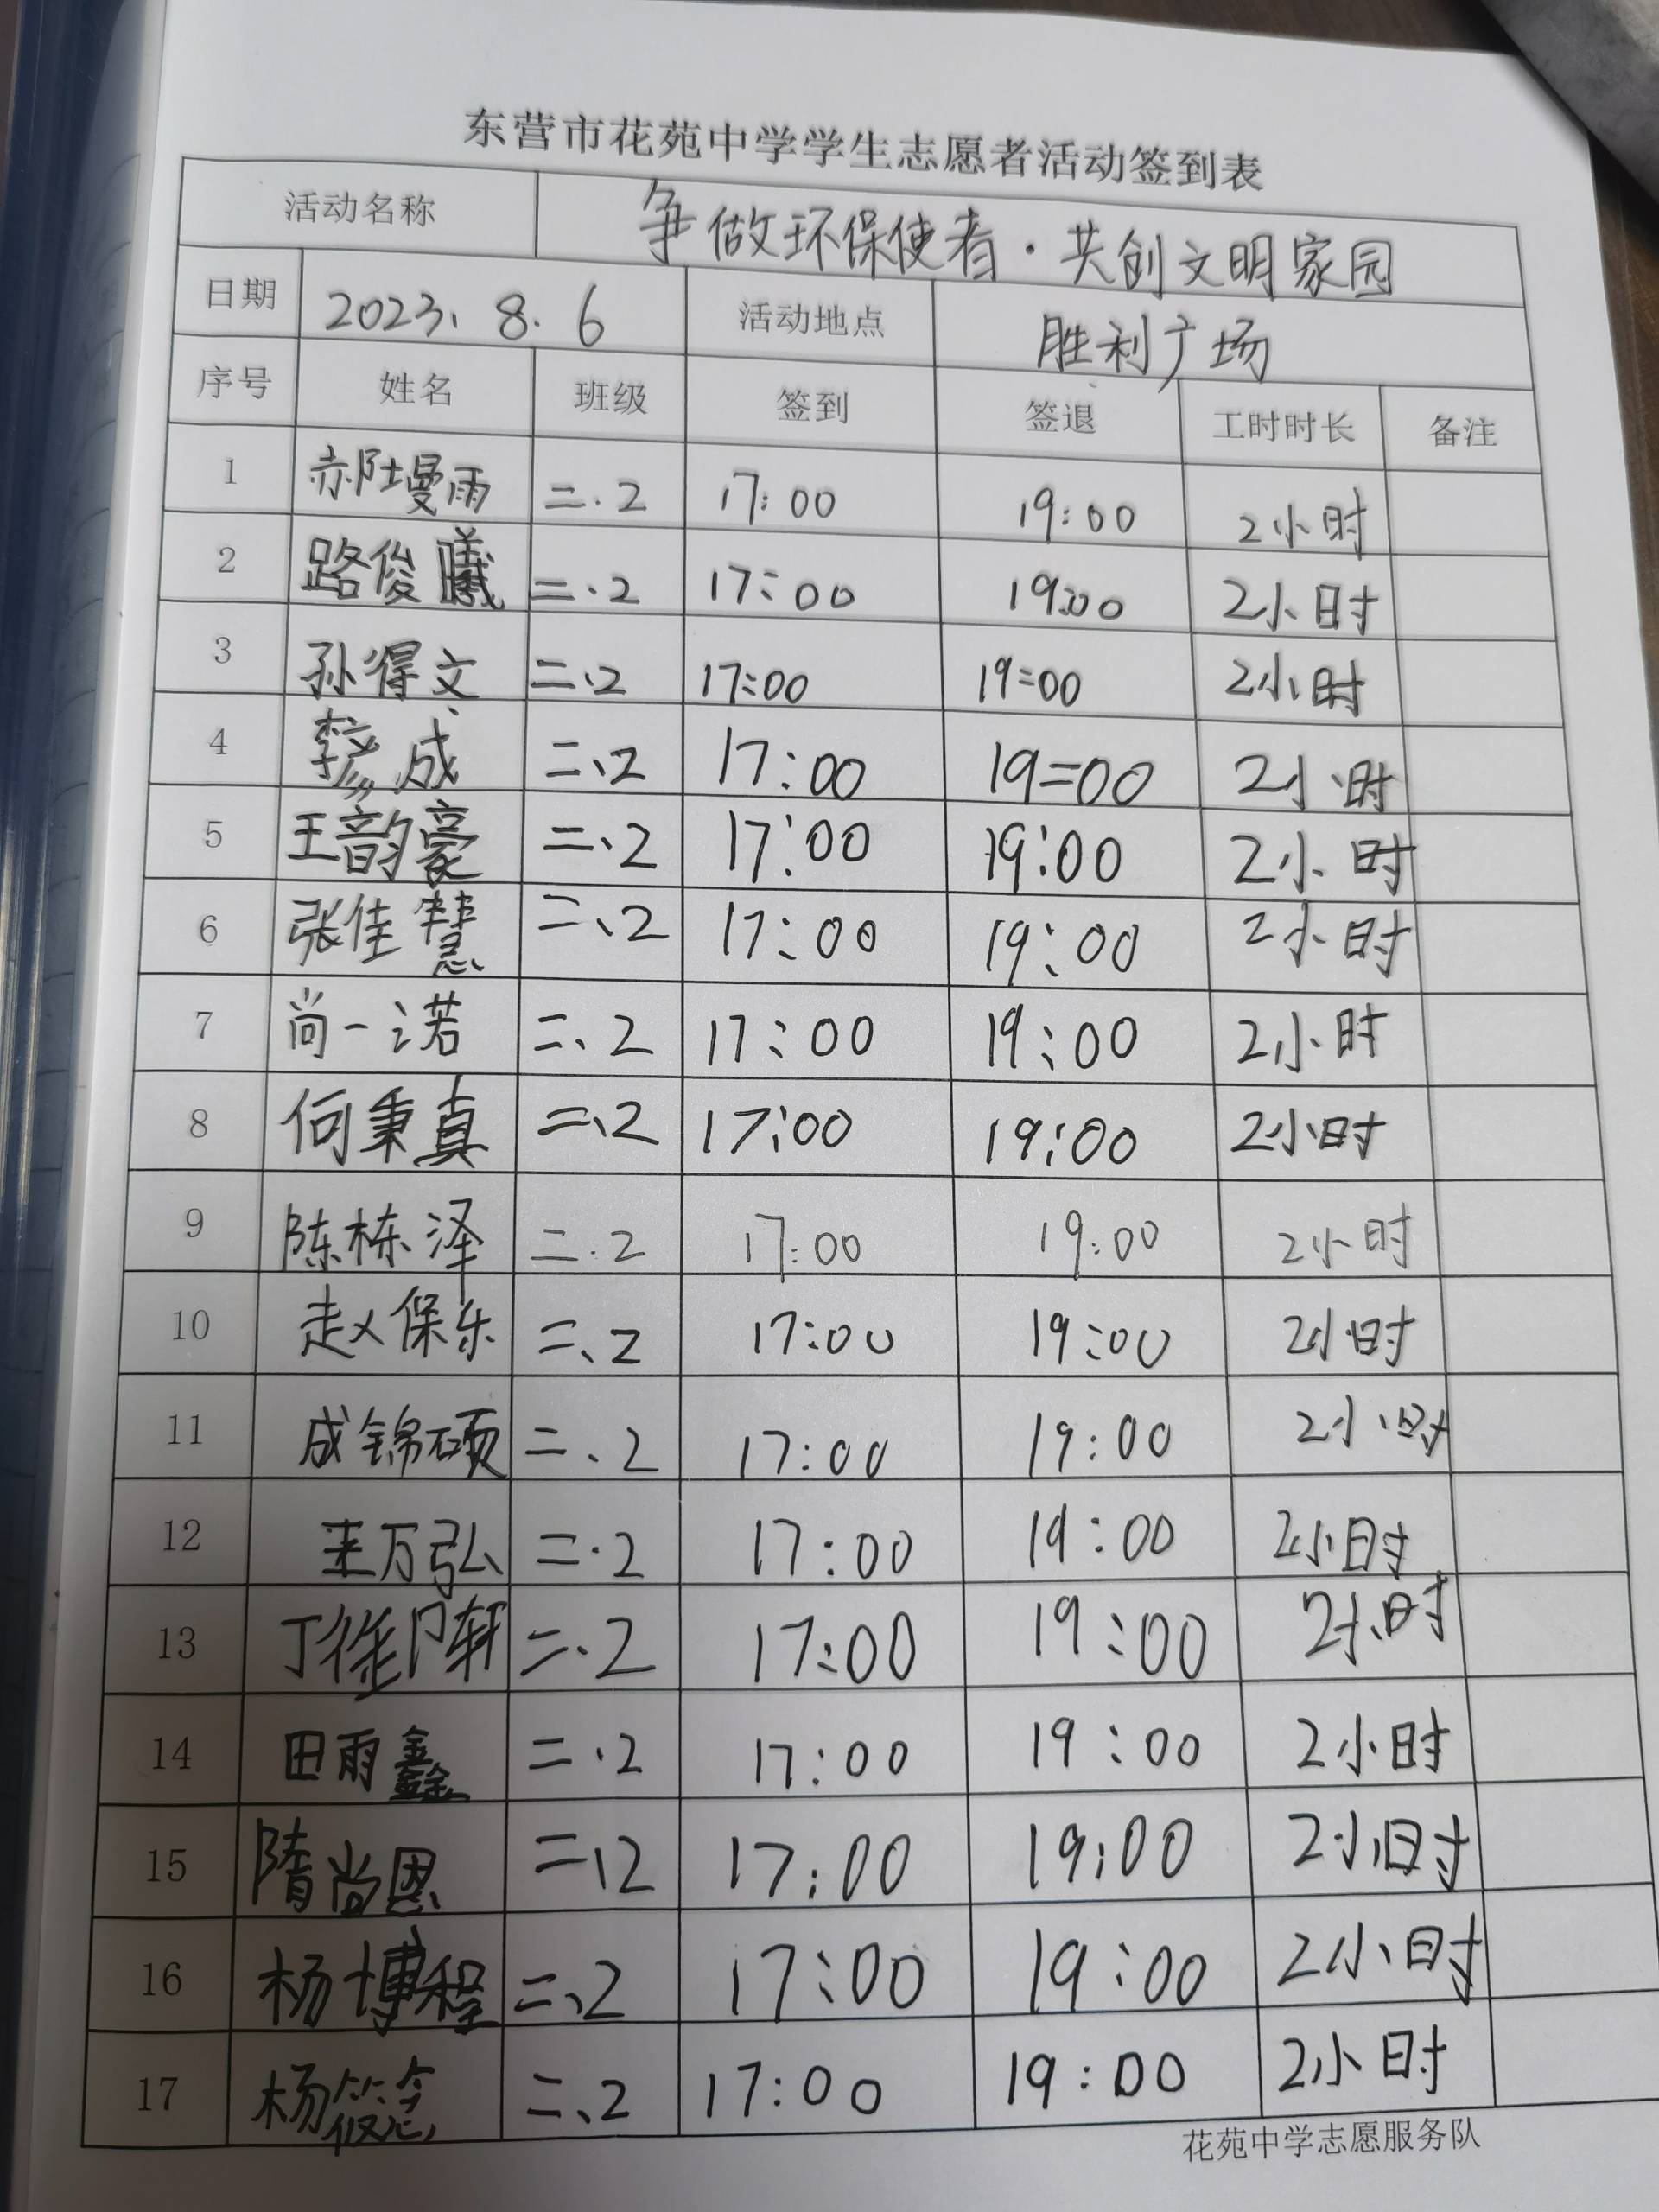 东营市花苑中学学生志愿者活动签到表
活动名称 争做环保使者·共创文明家园
日期 2023.8.6 活动地点 胜利广场
序号 姓名 班级 签到 签退 工时时长 备注
1 二.2 17:00 19:00 2小时
2 路俊曦 二.2 17:00 19:00 2小时
3 孙得文 二、2 17:00 19:00 2小时
4 成 二、2 17:00 19:00 2小时
5 王韵豪 二、2 17:00 19:00 2小时
6 张佳慧 二、2 17:00 19:00 2小时
7 尚一诺 二、2 17:00 19:00 2小时
8 何秉真 二、2 17:00 19:00 2小时
9 陈栋泽 二.2 17:00 19:00 2小时
10 赵保乐 二、2 17:00 19:00 2小时
11 成锦硕 二、2 17:00 19:00 2小时
12 万弘 二.2 17:00 19:00 2小时
13 丁 轩 二.2 17:00 19:00 2小时
14 田雨鑫 二.2 17:00 19:00 2小时
15 隋尚恩 二、2 17:00 19:00 2小时
16 杨博程 二、2 17:00 19:00 2小时
17 杨筱 二、2 17:00 19:00 2小时
花苑中学志愿服务队